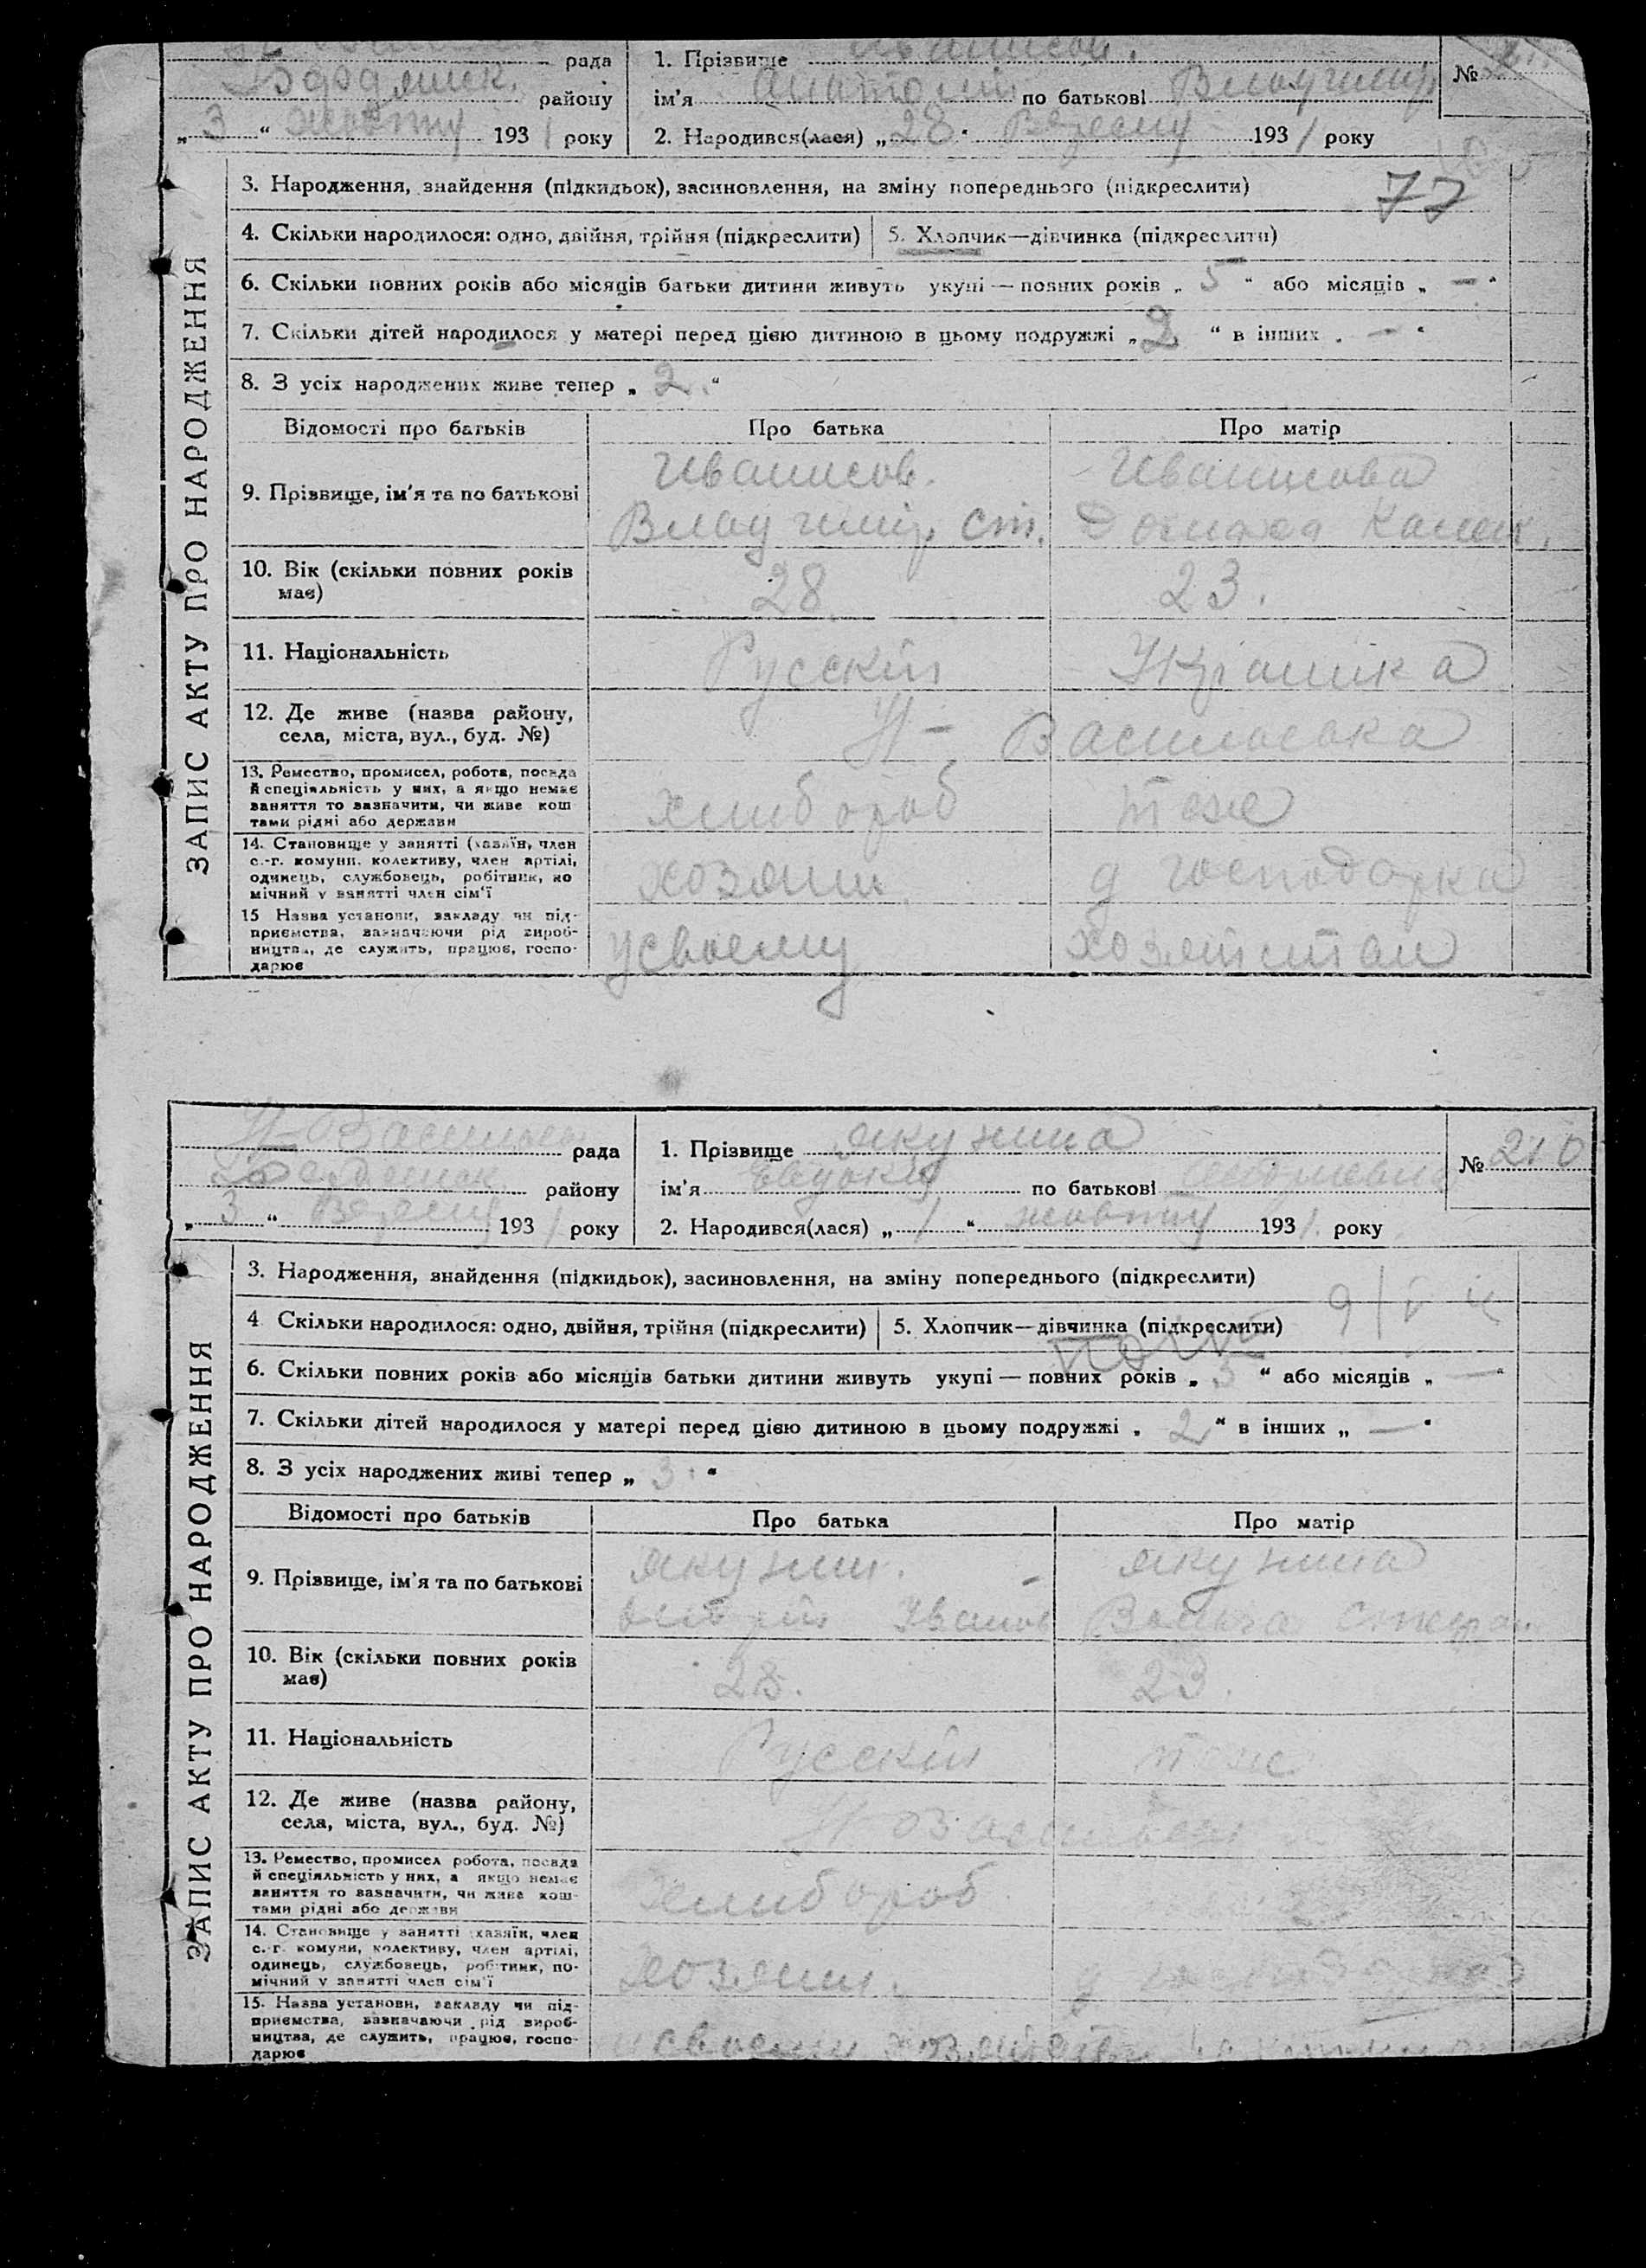 рада
Бердянск. району
„ 3 “ жовтня 1931 року
1. Прізвище
ім'я Анатолій по батькові Владимир
2. Народився(лася) „ 28 “ Вересня 1931 року
№
77
ЗАПИС АКТУ ПРО НАРОДЖЕННЯ
3. Народження, знайдення (підкидьок), засиновлення, на зміну попереднього (підкреслити)
4. Скільки народилося: одно, двійня, трійня (підкреслити)
5. Хлопчик—дівчинка (підкреслити)
6. Скільки повних років або місяців батьки дитини живуть укупі — повних років „ 5 “ або місяців „ — “
7. Скільки дітей народилося у матері перед цією дитиною в цьому подружжі „ 2 “ в інших „ — “
8. З усіх народжених живе тепер „ 2. “
Відомості про батьків Про батька Про матір
9. Прізвище, ім'я та по батькові
Владимір. ст.
10. Вік (скільки повних років має) 28 23.
11. Національність Русскій Украінка
12. Де живе (назва району, села, міста, вул., буд. №) Н- Васильовка
13. Ремество, промисел, робота, посада
й спеціяльність у них, а якщо немає
заняття то зазначити, чи живе кош
тами рідні або держави
хлибороб тоже
14. Становище у занятті (хазяїн, член
с.-г. комуни, колективу, член артілі,
одинець, службовець, робітник, по
мічний у занятті член сім'ї
хозяин д господарка
15 Назва установи, закладу чи під-
приємства, зазначаючи рід вироб-
ництва, де служить, працює, госпо-
дарює
усвоему
Н-Васильев рада
Бердянск району
„ 3 “ Вересня 1931 року
1. Прізвище Якунина
ім'я Евдокія по батькові
2. Народився(лася) „ 1 “ жовтня 1931. року
№ 210
ЗАПИС АКТУ ПРО НАРОДЖЕННЯ
3. Народження, знайдення (підкидьок), засиновлення, на зміну попереднього (підкреслити)
4 Скільки народилося: одно, двійня, трійня (підкреслити)
5. Хлопчик—дівчинка (підкреслити)
6. Скільки повних років або місяців батьки дитини живуть укупі — повних років „ 5 “ або місяців „ — “
7. Скільки дітей народилося у матері перед цією дитиною в цьому подружжі „ 2 “ в інших „ — “
8. З усіх народжених живі тепер „ 3. “
Відомості про батьків Про батька Про матір
9. Прізвище, ім'я та по батькові Якунин. Якунина
Іванов
10. Вік (скільки повних років має) 28. 23.
11. Національність Русскій тоже
12. Де живе (назва району, села, міста, вул., буд. №)
13. Ремество, промисел робота, посада
й спеціяльність у них, а якщо немає
заняття то зазначити, чи живе кош-
тами рідні або держави
хлибороб
14. Становище у занятті (хазяїн, член
с.-г. комуни, колективу, член артілі,
одинець, службовець, робітник, по-
мічний у занятті член сім'ї
хозяин.
15. Назва установи, закладу чи під-
приємства, зазначаючи рід вироб-
ництва, де служить, працює, госпо-
дарює
своему